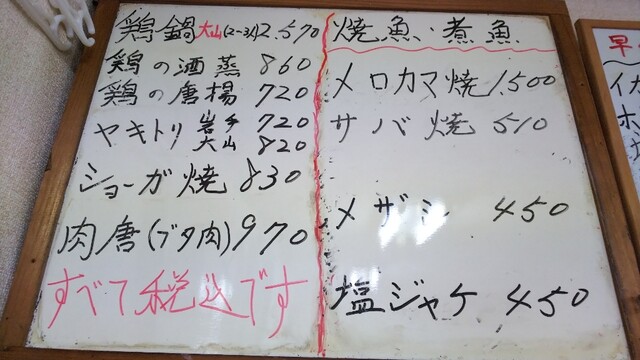 鶏鍋 大山(2~3人)2.570
鶏の酒蒸 860
鶏の唐揚 720
ヤキトリ 岩手 720
大山 820
ショーガ焼 830
肉唐(ブタ肉)970
すべて税込です
焼魚・煮魚
メロカマ焼 1.500
サバ焼 510
メザシ 450
塩ジャケ 450
早
イカ
ホ